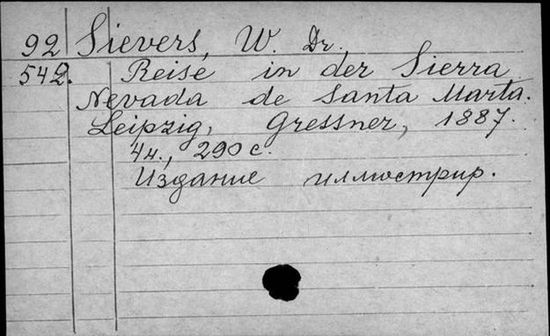 92 Sievers, W. Dr.
542. Reise in der Sierra
Nevada de Santa Marta.
Leipzig, Gressner, 1887.
4н., 290 с.
Издание иллюстрир.